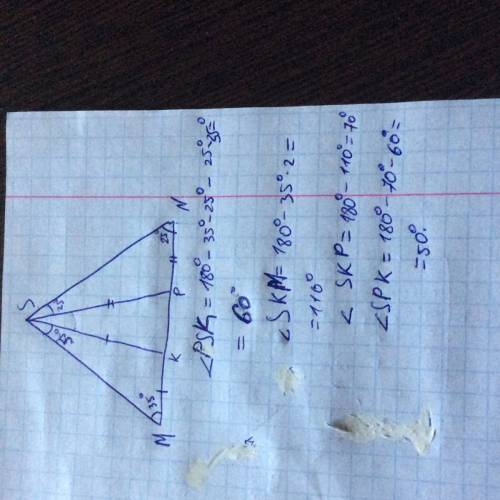 S
25
35°
35°
25°
M
K
P
N
∠PSK = 180° - 35° - 25° - 25° · 35 = °
= 60°
∠SKM = 180° - 35° · 2 =
= 110°
∠SKP = 180° - 110° = 70°
∠SPK = 180° - 70° - 60° =
= 50°